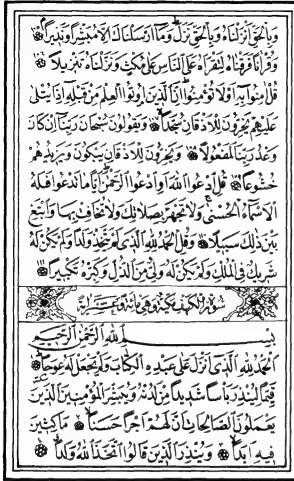 وَبِالْحَقِّ أَنْزَلْنَاهُ وَبِالْحَقِّ نَزَلَ وَمَا أَرْسَلْنَاكَ إِلَّا مُبَشِّرًا وَنَذِيرًا
وَقُرْآنًا فَرَقْنَاهُ لِتَقْرَأَهُ عَلَى النَّاسِ عَلَى مُكْثٍ وَنَزَّلْنَاهُ تَنْزِيلًا
قُلْ آمِنُوا بِهِ أَوْ لَا تُؤْمِنُوا إِنَّ الَّذِينَ أُوتُوا الْعِلْمَ مِنْ قَبْلِهِ إِذَا يُتْلَى
عَلَيْهِمْ يَخِرُّونَ لِلْأَذْقَانِ سُجَّدًا وَيَقُولُونَ سُبْحَانَ رَبِّنَا إِنْ كَانَ
وَعْدُ رَبِّنَا لَمَفْعُولًا وَيَخِرُّونَ لِلْأَذْقَانِ يَبْكُونَ وَيَزِيدُهُمْ
خُشُوعًا قُلِ ادْعُوا اللَّهَ أَوِ ادْعُوا الرَّحْمَنَ أَيًّا مَا تَدْعُوا فَلَهُ
الْأَسْمَاءُ الْحُسْنَى وَلَا تَجْهَرْ بِصَلَاتِكَ وَلَا تُخَافِتْ بِهَا وَابْتَغِ
بَيْنَ ذَلِكَ سَبِيلًا وَقُلِ الْحَمْدُ لِلَّهِ الَّذِي لَمْ يَتَّخِذْ وَلَدًا وَلَمْ يَكُنْ لَهُ
شَرِيكٌ فِي الْمُلْكِ وَلَمْ يَكُنْ لَهُ وَلِيٌّ مِنَ الذُّلِّ وَكَبِّرْهُ تَكْبِيرًا
سُورَةُ الْكَهْفِ مَكِّيَّةٌ وَهِيَ مِائَةٌ
بِسْمِ اللَّهِ الرَّحْمَنِ الرَّحِيمِ
الْحَمْدُ لِلَّهِ الَّذِي أَنْزَلَ عَلَى عَبْدِهِ الْكِتَابَ وَلَمْ يَجْعَلْ لَهُ عِوَجًا
قَيِّمًا لِيُنْذِرَ بَأْسًا شَدِيدًا مِنْ لَدُنْهُ وَيُبَشِّرَ الْمُؤْمِنِينَ الَّذِينَ
يَعْمَلُونَ الصَّالِحَاتِ أَنَّ لَهُمْ أَجْرًا حَسَنًا مَاكِثِينَ
فِيهِ أَبَدًا وَيُنْذِرَ الَّذِينَ قَالُوا اتَّخَذَ اللَّهُ وَلَدًا